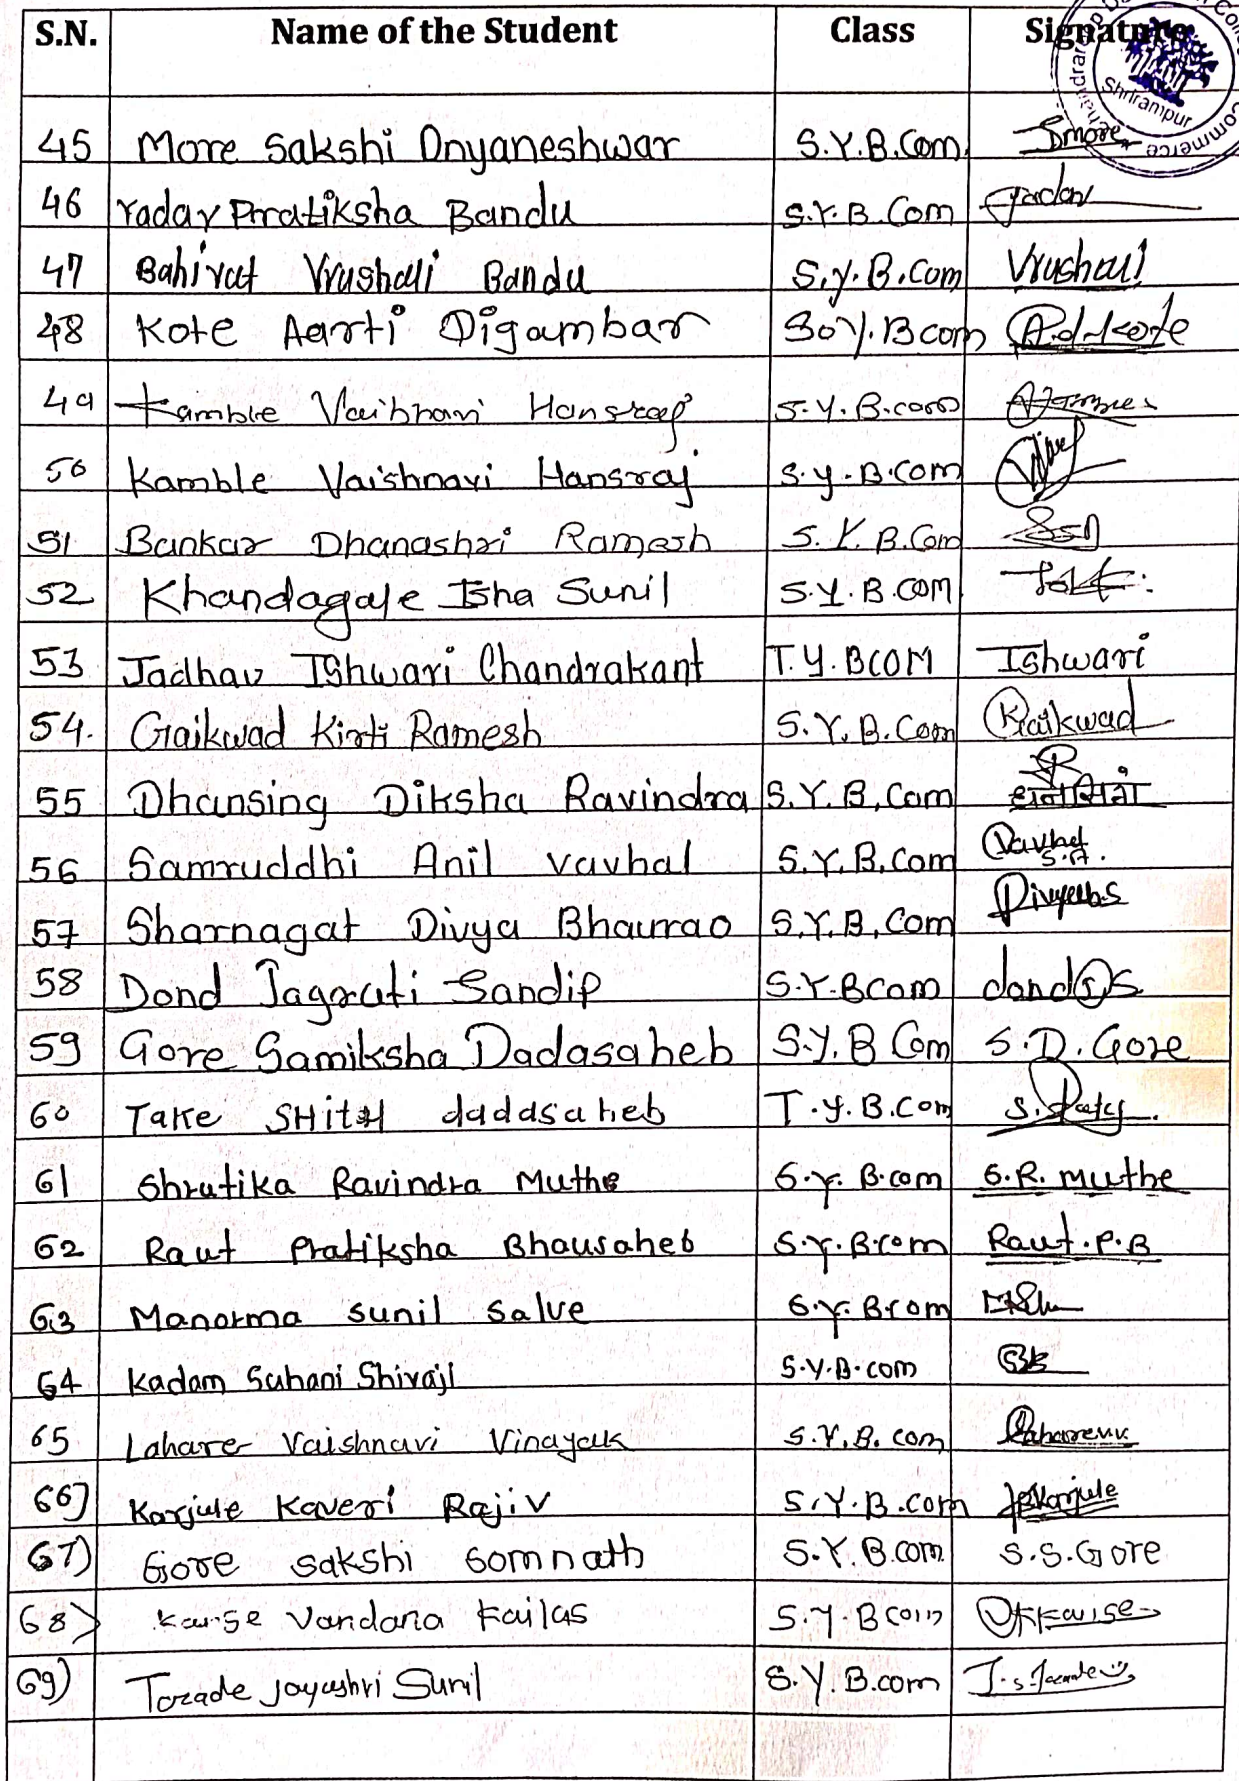 S.N. Name of the Student Class Signature
Shrirampur
Commerce
45 More Sakshi Dnyaneshwar S.Y.B.Com. Smore
46 Yadav Pratiksha Bandu S.Y.B.Com Yadav
47 Bahirat Vrushali Bandu S.y.B.Com Vrushali
48 Kote Aarti Digambar So Y.Bcom A.d.kote
49 Kamble Vaibhavi Hansraj S.Y.B.com
50 Kamble Vaishnavi Hansraj S.y.B.Com
51 Bankar Dhanashri Ramesh S.Y.B.Com
52 Khandagale Isha Sunil S.Y.B.COM
53 Jadhav IShwari Chandrakant T.Y.BCOM Ishwari
54. Gaikwad Kirti Ramesh S.Y.B.Com Gaikwad
55 Dhansing Diksha Ravindra S.Y.B.Com धनसिंग
56 Samruddhi Anil vavhal S.Y.B.Com Vavhal S.A.
57 Sharnagat Divya Bhaurao S.Y.B.Com
58 Dond Jagruti Sandip S.Y.Bcom dond J S.
59 Gore Samiksha Dadasaheb S.Y.B Com S.D.Gore
60 Take SHital dadasaheb T.Y.B.Com
61 Shrutika Ravindra Muthe S.Y.B.com S.R. Muthe
62 Raut Pratiksha Bhausaheb S.Y.B.com Raut.P.B
63 Manorma sunil Salve S.Y.Bcom
64 Kadam Suhani Shivaji S.Y.B.com
65 Lahare Vaishnavi Vinayak S.Y.B.com Laharevv.
66) Karjule Kaveri Rajiv S.Y.B.com Karjule
67) Gore sakshi Somnath S.Y.B.com S.S.Gore
68) karse Vandana Kailas S.Y.Bcom
69) Torade jayashri Sunil S.Y.B.com